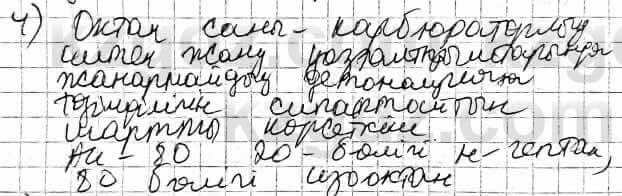 4) Октан саны - карбюраторлы
іштен жану қозғалтқыштарында
жанармайдың детонацияға
төзімділігін сипаттайтын
шартты көрсеткіш
Аи - 80 20 - бөлігі н-гептан,
80 бөлігі изооктан